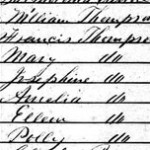 William Thompso
Francis Thompso
Mary do
Josephine do
Amelia do
Ellen do
Polly do